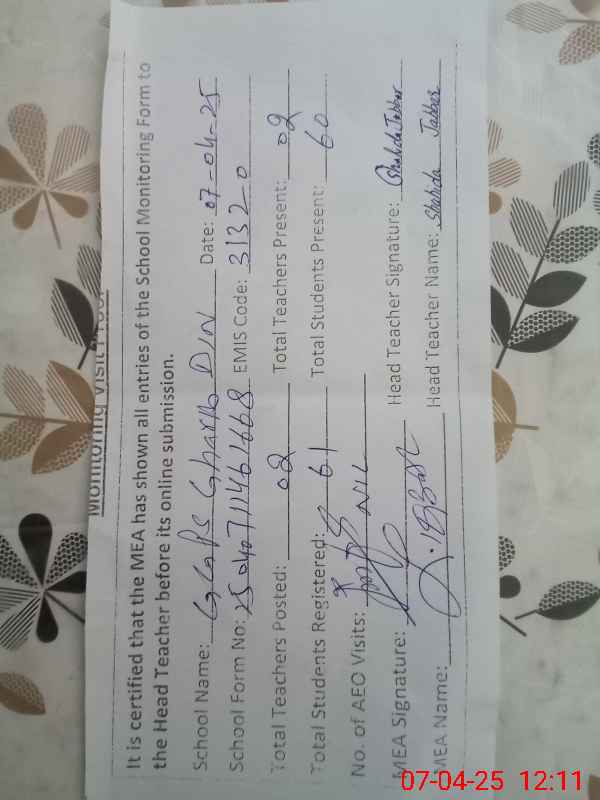 Monitoring Visit Proof
It is certified that the MEA has shown all entries of the School Monitoring Form to
the Head Teacher before its online submission.
School Name: GGPS Gharib DIN Date: 07-04-25
School Form No: EMIS Code: 31320
Total Teachers Posted: 02 Total Teachers Present: 02
Total Students Registered: 61 Total Students Present: 60
No. of AEO Visits: NIL
MEA Signature: Head Teacher Signature: Shahida Jabbar
MEA Name: Head Teacher Name: Shahida Jabbar
07-04-25 12:11